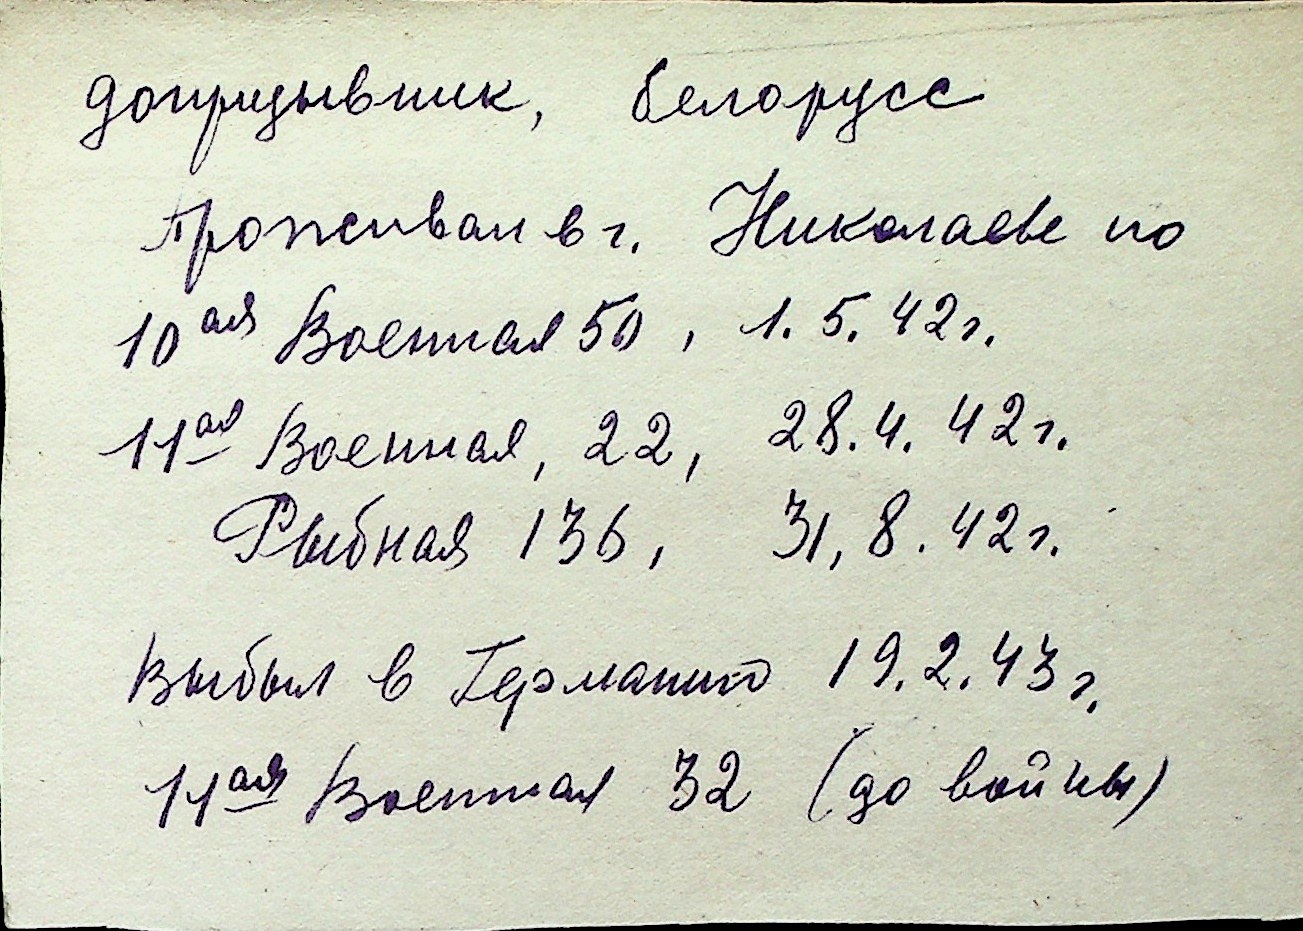 допризывник, белорусс
проживал в г. Николаеве по
10ая Военная 50, 1.5.42г.
11ая Военная, 22, 28.4.42г.
Рыбная 136, 31,8.42г.
Выбыл в Германию 19.2.43г.
11ая Военная 32 (до войны)